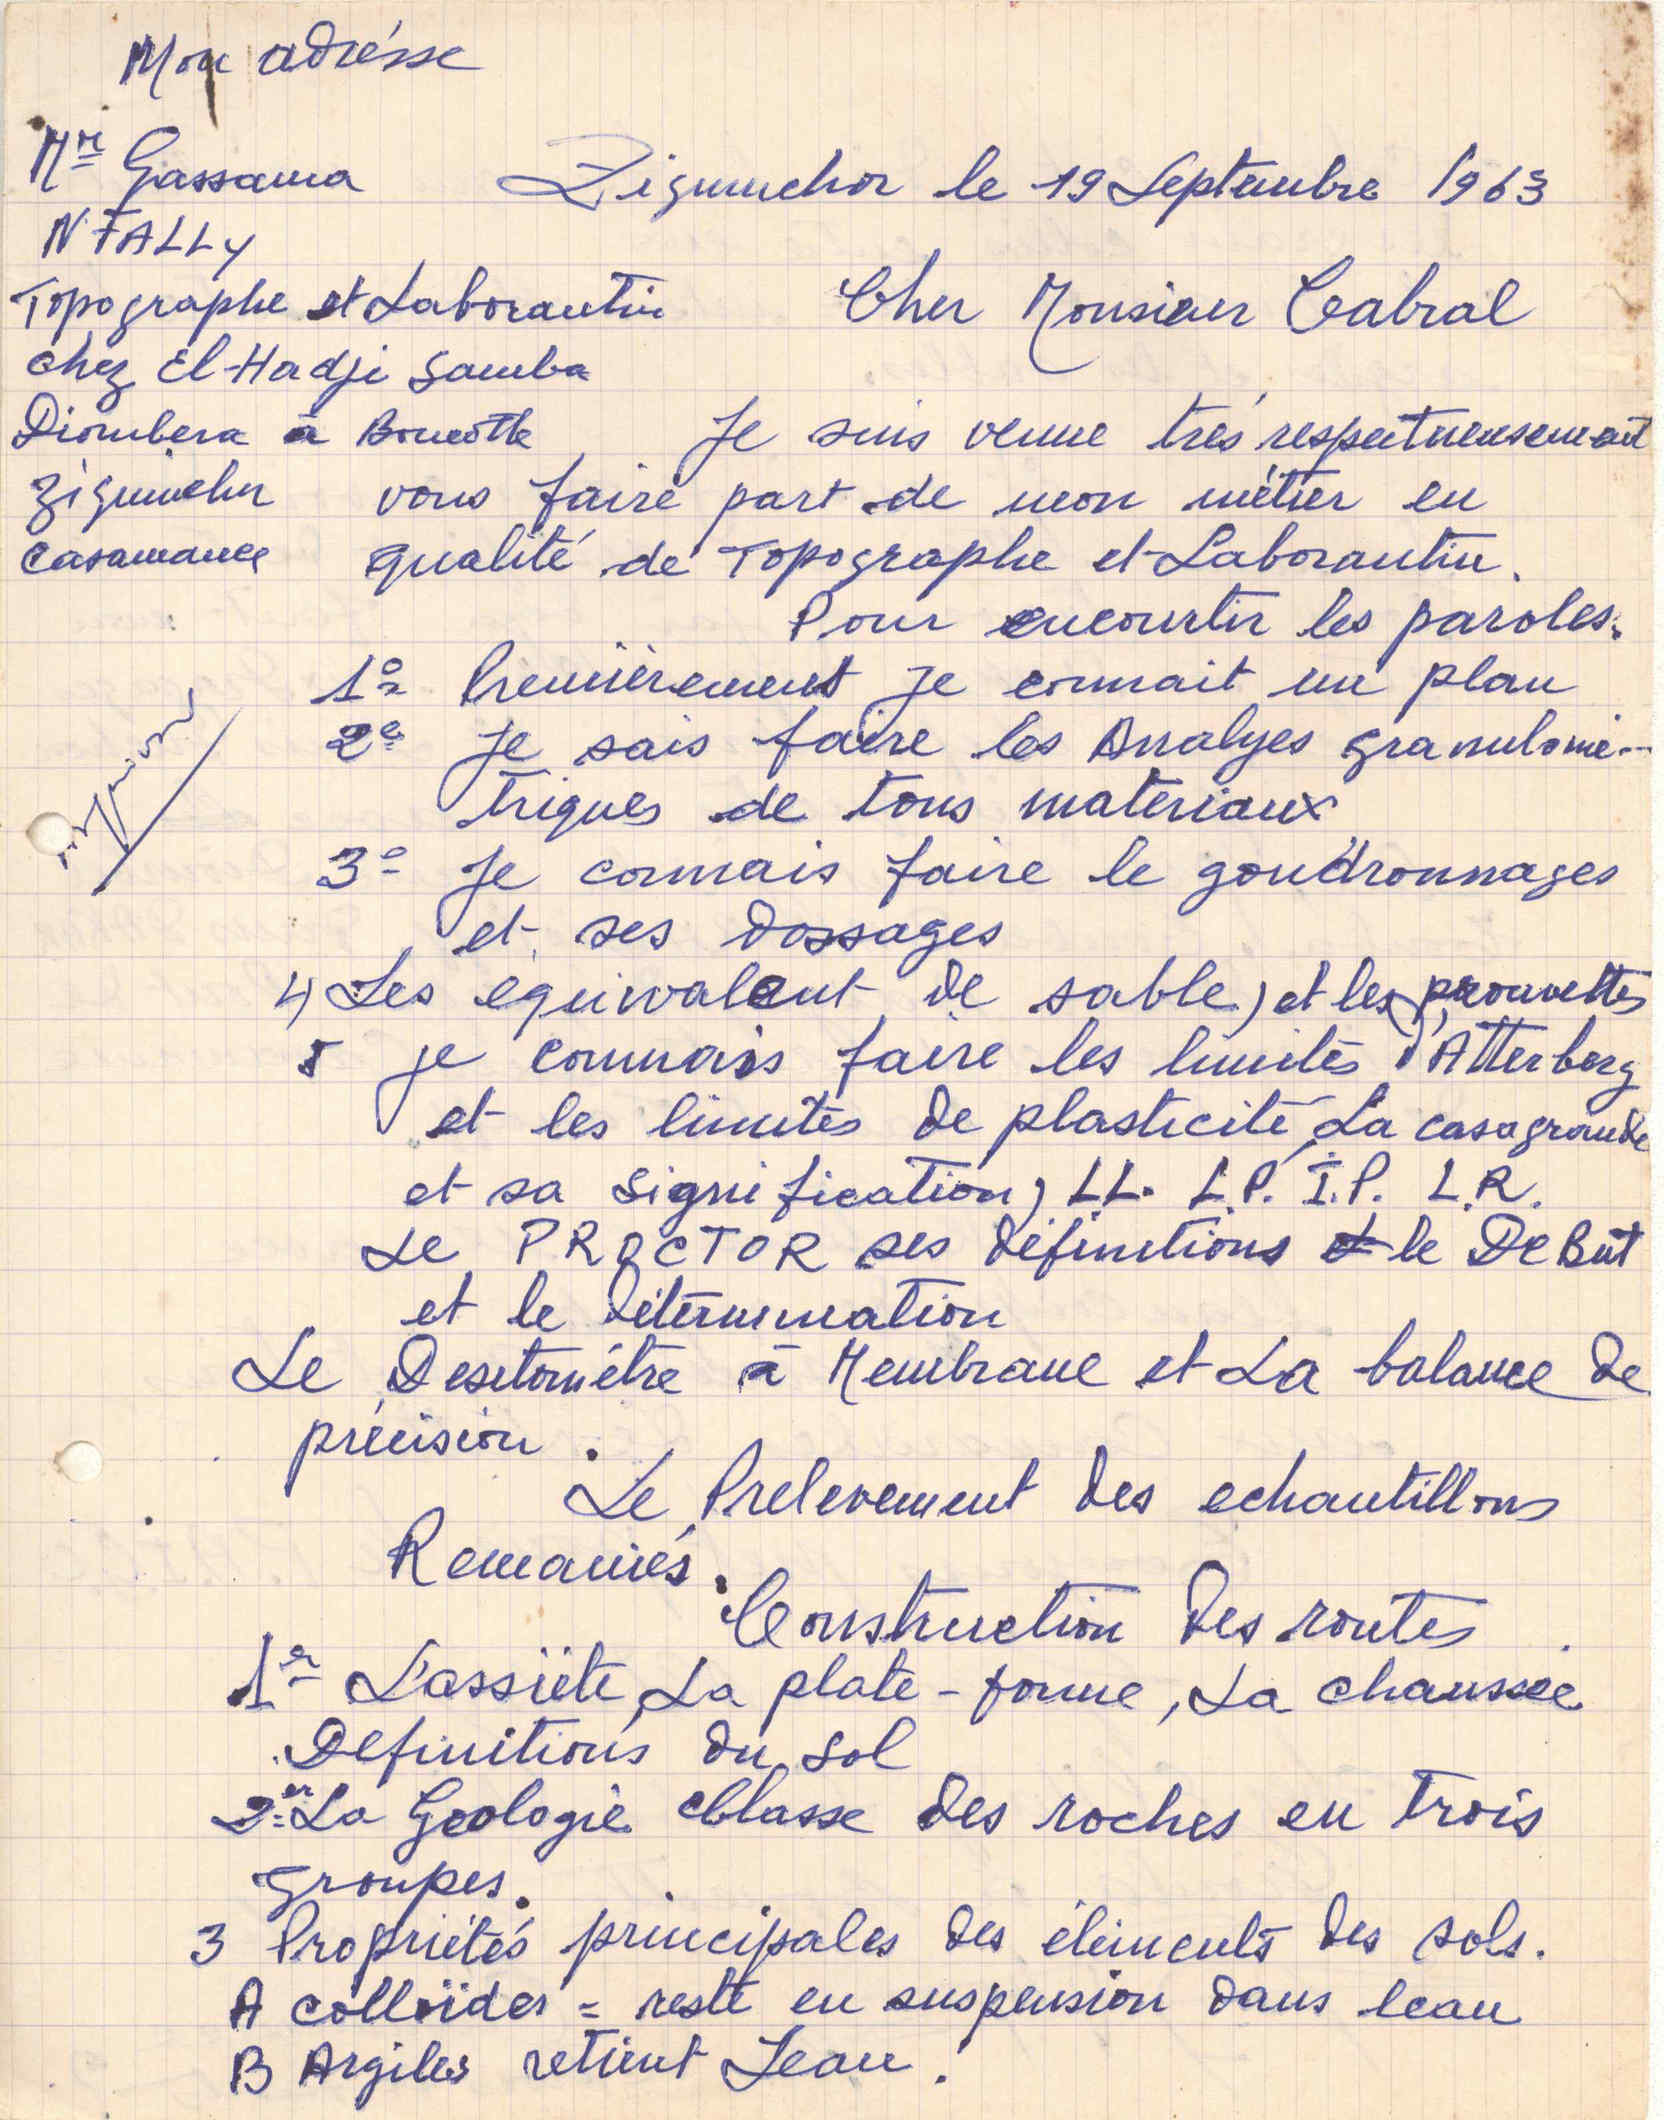 Mon adrésse
Mr Gassama
N'FALLY
Topographe et Laborantin
chez El-Hadji Samba
Diombera à Boucotte
Ziguinchor
Casamance
Ziguinchor le 19 Septembre 1963
Cher Monsieur Cabral
Je suis venue trés respectueusement
vous faire part de mon métier en
qualité de Topographe et Laborantin.
Pour encourtir les paroles.
1º Premièrement je connait un plan
2º Je sais faire les Analyes granulomé-
triques de tous materiaux
3º Je connais faire le goudronnages
et ses dossages
4) Les équivalent de sable) et les prouvettes
5 je connais faire les limités d'Atterberg
et les limités de plasticité, La casagrande
et sa signification) LL. L.P. I.P. L.R.
Le PROCTOR ses définitions et le De But
et le Détérmination
Le Desitométre à Membrane et La balance de
précision.
Le Prelevement des echantillons
Remaniés.
Construction des routes
1er L'assiéte, La plate-forme, La chaussée
Définitions du sol
2er La Geologie Classe des roches en trois
groupes.
3 Propriétés principales des éléments des sols.
A colloïdes = reste en suspension dans leau
B Argiles retient Jeau.